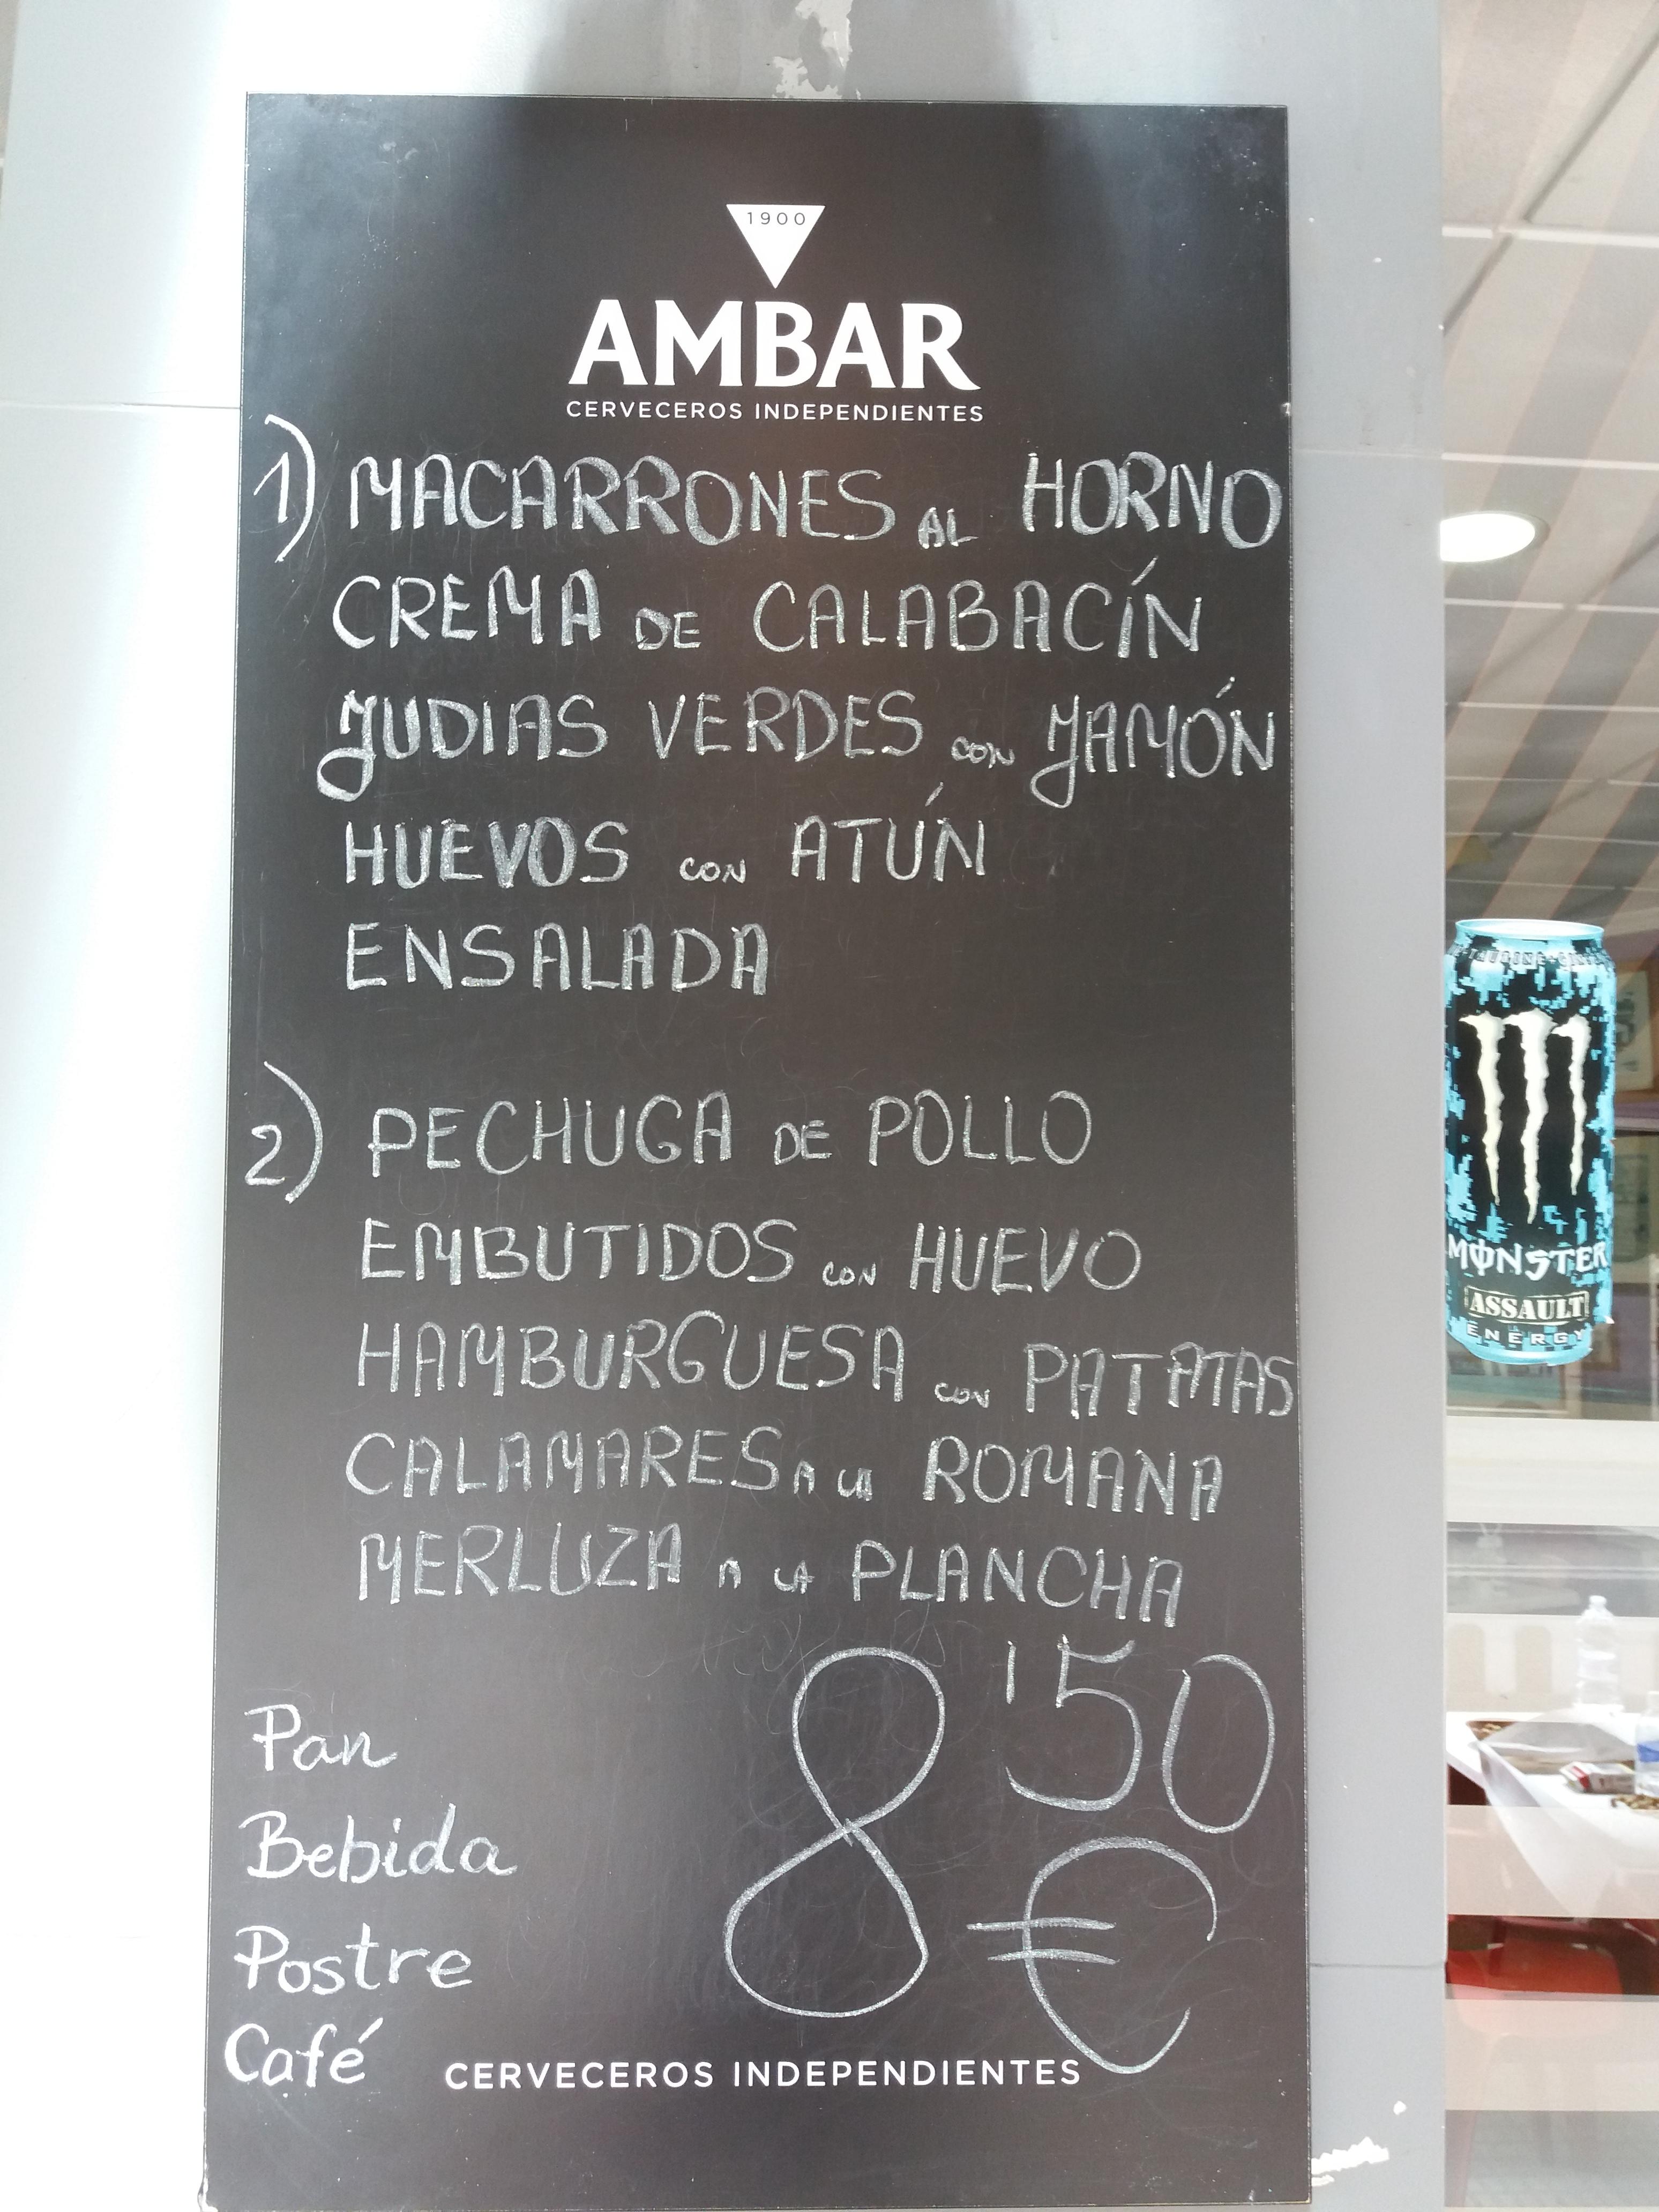 1900
AMBAR
CERVECEROS INDEPENDIENTES
1) MACARRONES AL HORNO
CREMA DE CALABACÍN
JUDIAS VERDES CON JAMÓN
HUEVOS CON ATÚN
ENSALADA
2) PECHUGA DE POLLO
EMBUTIDOS CON HUEVO
HAMBURGUESA CON PATATAS
CALAMARES A LA ROMANA
MERLUZA A LA PLANCHA
Pan
Bebida
Postre
Café
8'50
€
CERVECEROS INDEPENDIENTES
MONSTER
ASSAULT
ENERGY